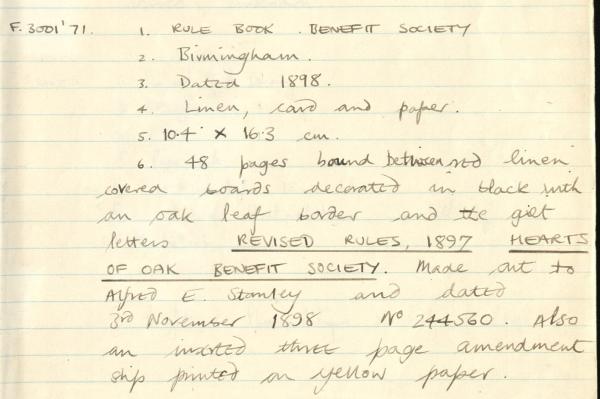 F.3001'71. 1. RULE BOOK . BENEFIT SOCIETY
2. Birmingham.
3. Dated 1898.
4. Linen, card and paper.
5. 10.4 x 16.3 cm.
6. 48 pages bound between red linen
covered boards decorated in black with
an oak leaf border and the gilt
letters REVISED RULES, 1897 HEARTS
OF OAK BENEFIT SOCIETY. Made out to
Alfred E. Stanley and dated
3rd November 1898 No 244560. Also
an inserted three page amendment
slip printed on yellow paper.